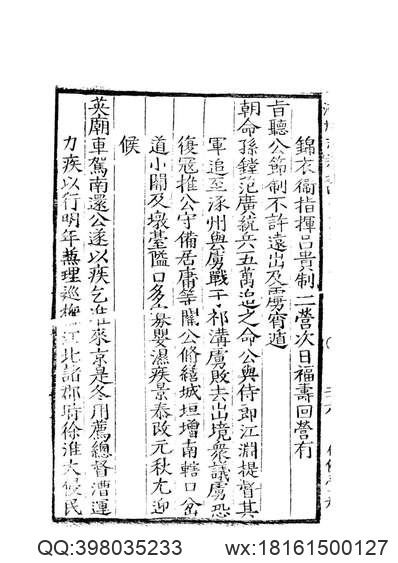 錦衣衛指揮呂貴制二營次日福壽回營有
旨聽公節制不許遠出及虜宵遁
朝命孫鏜范廣統兵五萬追之命公與侍郎江淵提督其
軍追至涿州與虜戰于祁溝虜敗去出境衆議虜恐
復冦推公守備居庸等關公脩繕城垣增南轄口岔
道小關及墩臺隘口多
嬰濕疾景泰改元秋尤迎
候
英廟車駕南還公遂以疾乞
來京是冬用薦總督漕運
力疾以行明年兼理巡撫江北諸郡時徐淮大
民
QQ:398035233
wx:18161500127